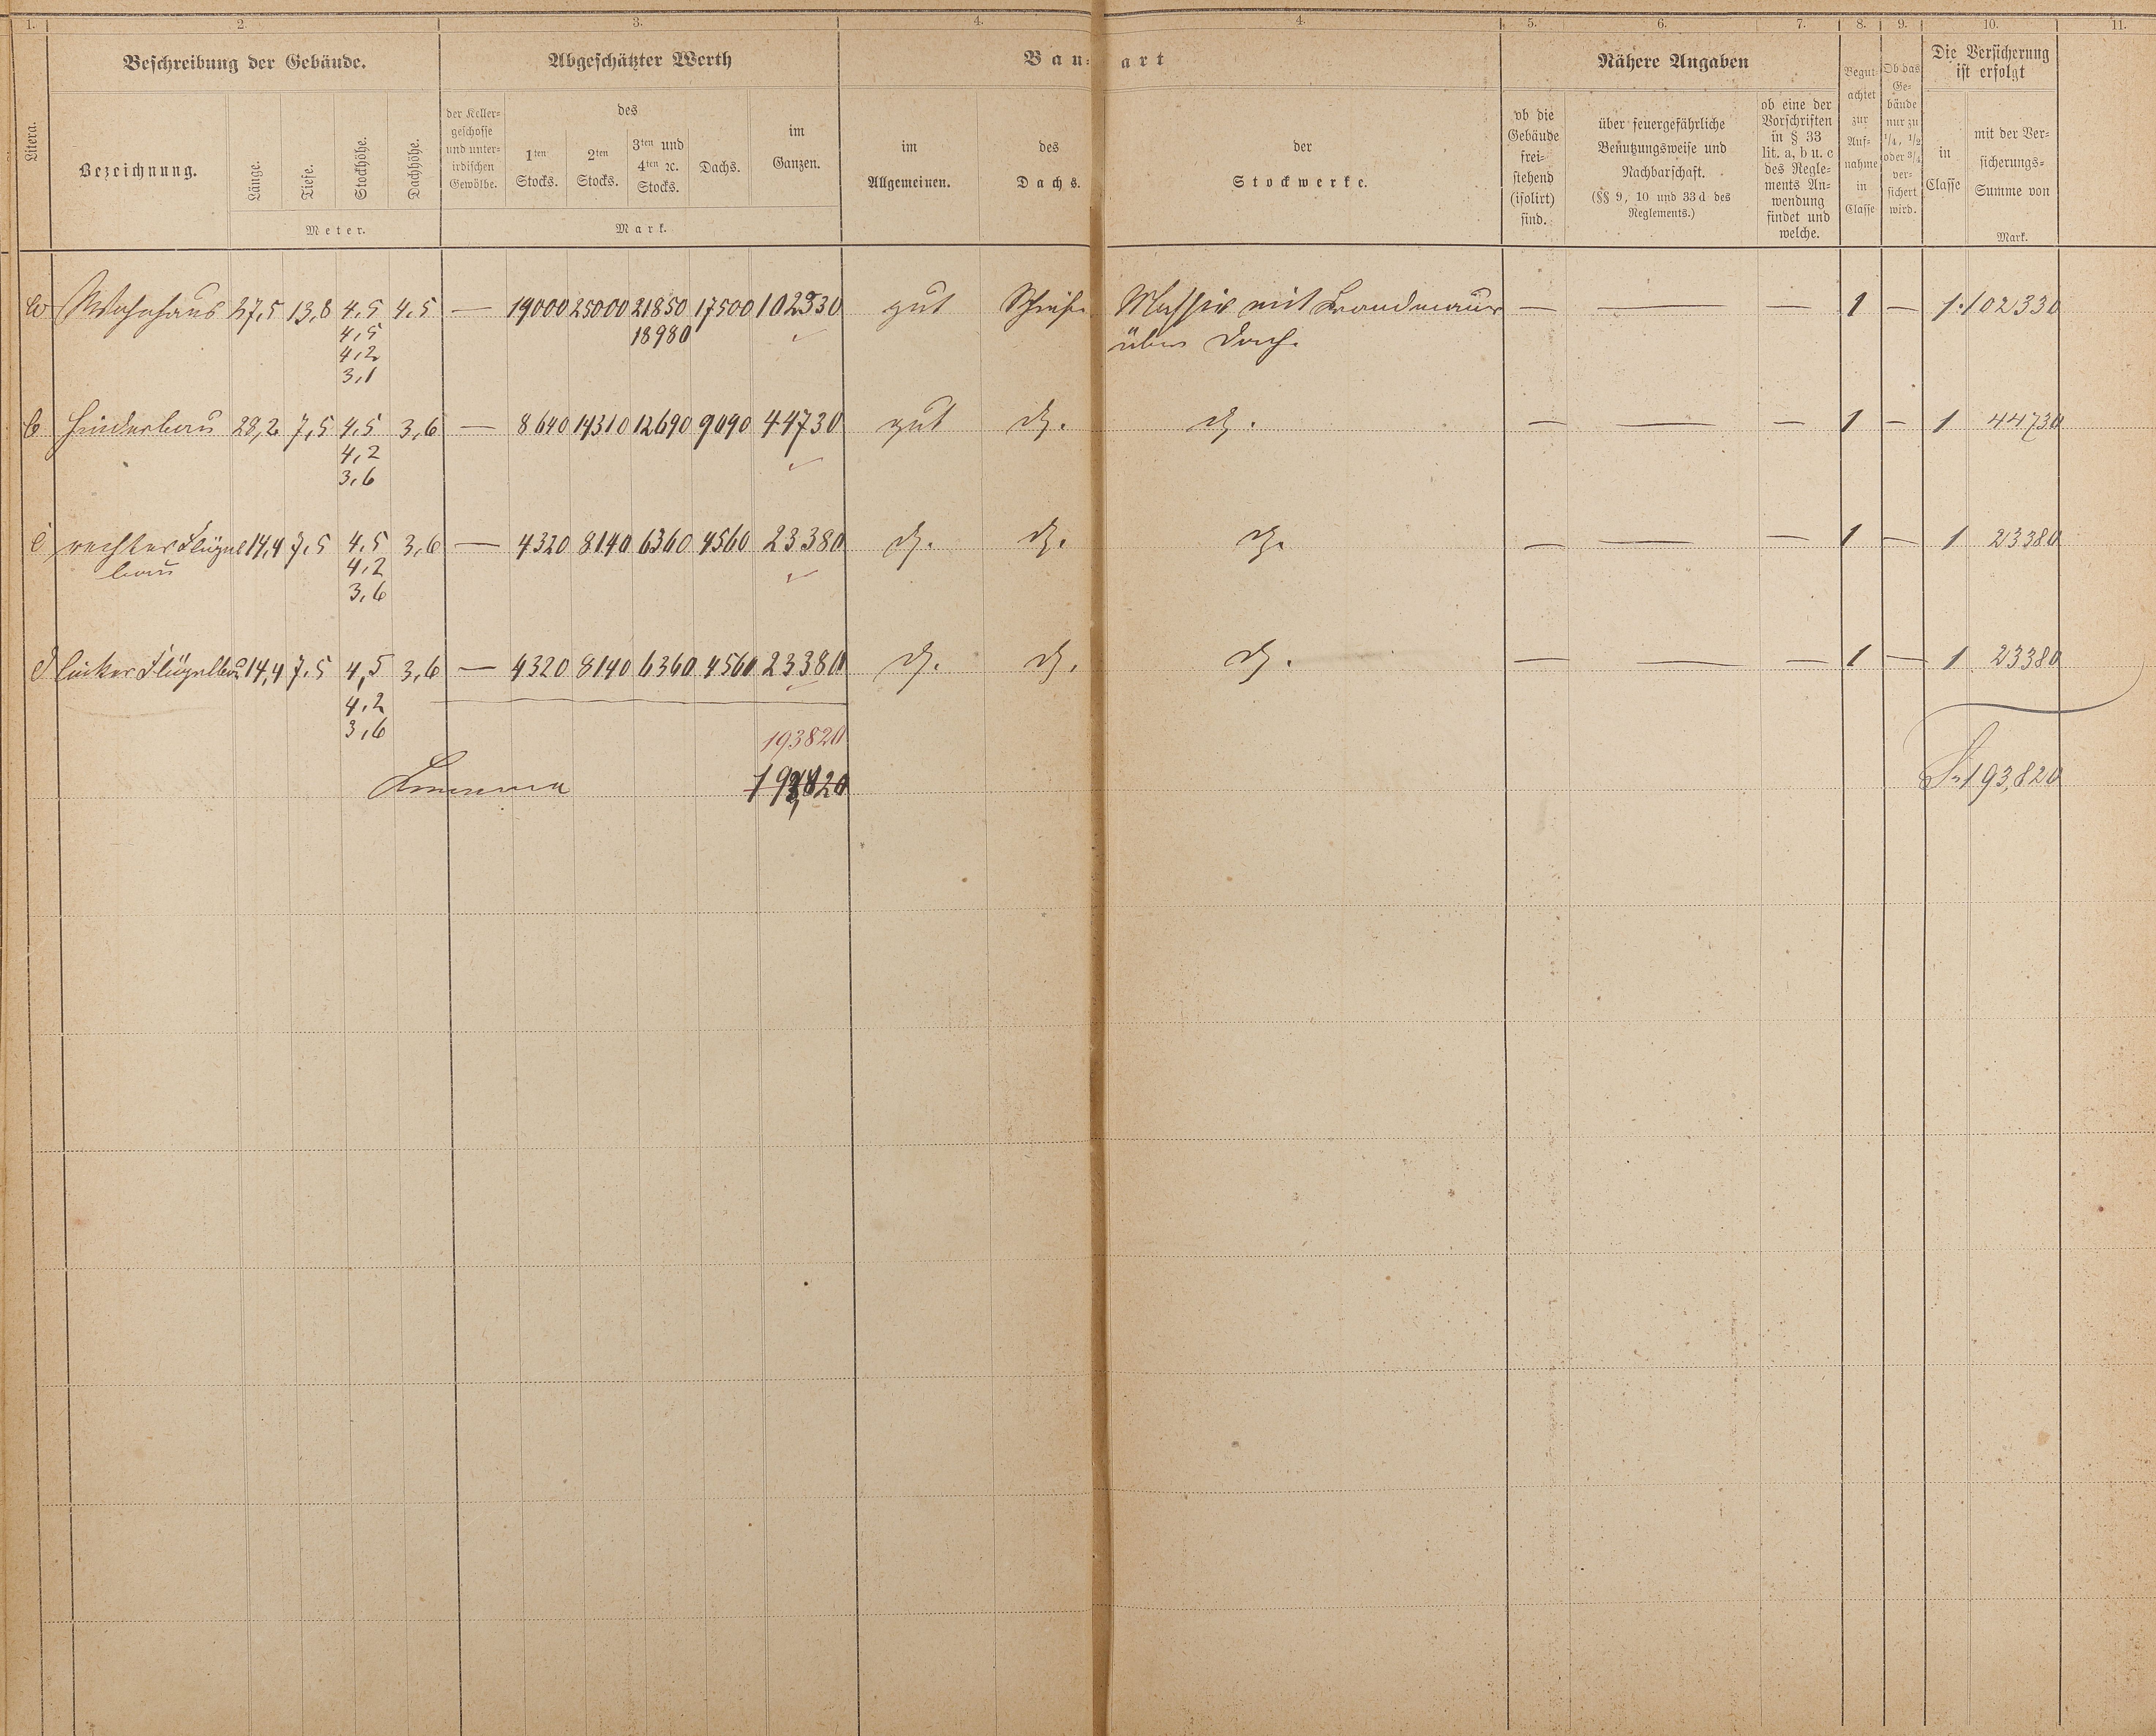 1. 2. 3. 4. 4. 5. 6. 7. 8. 9. 10. 11.
Beschreibung der Gebäude. Abgeschätzter Werth Bau-art Nähere Angaben Die Versicherung
ist erfolgt
Litera.
Bezeichnung.
Länge.
Tiefe.
Stockhöhe.
Dachhöhe.
Meter.
der Keller-
geschosse
und unter-
irdischen
Gewölbe.
des
1ten
Stocks.
2ten
Stocks.
3ten und
4ten ꝛc.
Stocks.
Dachs.
im
Ganzen.
Mark.
im
Allgemeinen.
des
Dachs.
der
Stockwerke.
ob die
Gebäude
frei-
stehend
(isolirt)
sind.
über feuergefährliche
Benutzungsweise und
Nachbarschaft.
(§§ 9, 10 und 33 d des
Reglements.)
ob eine der
Vorschriften
in § 33
lit. a, b u. c
des Regle-
ments An-
wendung
findet und
welche.
Begut-
achtet
zur
Auf-
nahme
in
Classe
Ob das
Ge-
bäude
nur zu
1/4, 1/2
oder 3/4
ver-
sichert
wird.
in
Classe
mit der Ver-
sicherungs-
Summe von
Mark.
a Wohnhaus 27,5 13,8 4,5 4,5 — 19000 25000 21850 17500 102330 gut Schiefer Massiv mit Brandmauer — — — 1 — 1. 102330
4,5 18980 über Dach.
4,2
3,1
b Hinterbau 28,2 7,5 4,5 3,6 — 8640 14310 12690 9090 44730 gut do. do. — — — 1 — 1 44730
4,2
3,6
c rechter Flügel 14,4 7,5 4,5 3,6 — 4320 8140 6360 4560 23380 do. do. do. — — — 1 — 1 23380
bau 4,2
3,6
d linker Flügelbau 14,4 7,5 4,5 3,6 — 4320 8140 6360 4560 23380 do. do. do. — — — 1 — 1 23380
4,2
3,6
193820
Summa 193,820 S. 193,820